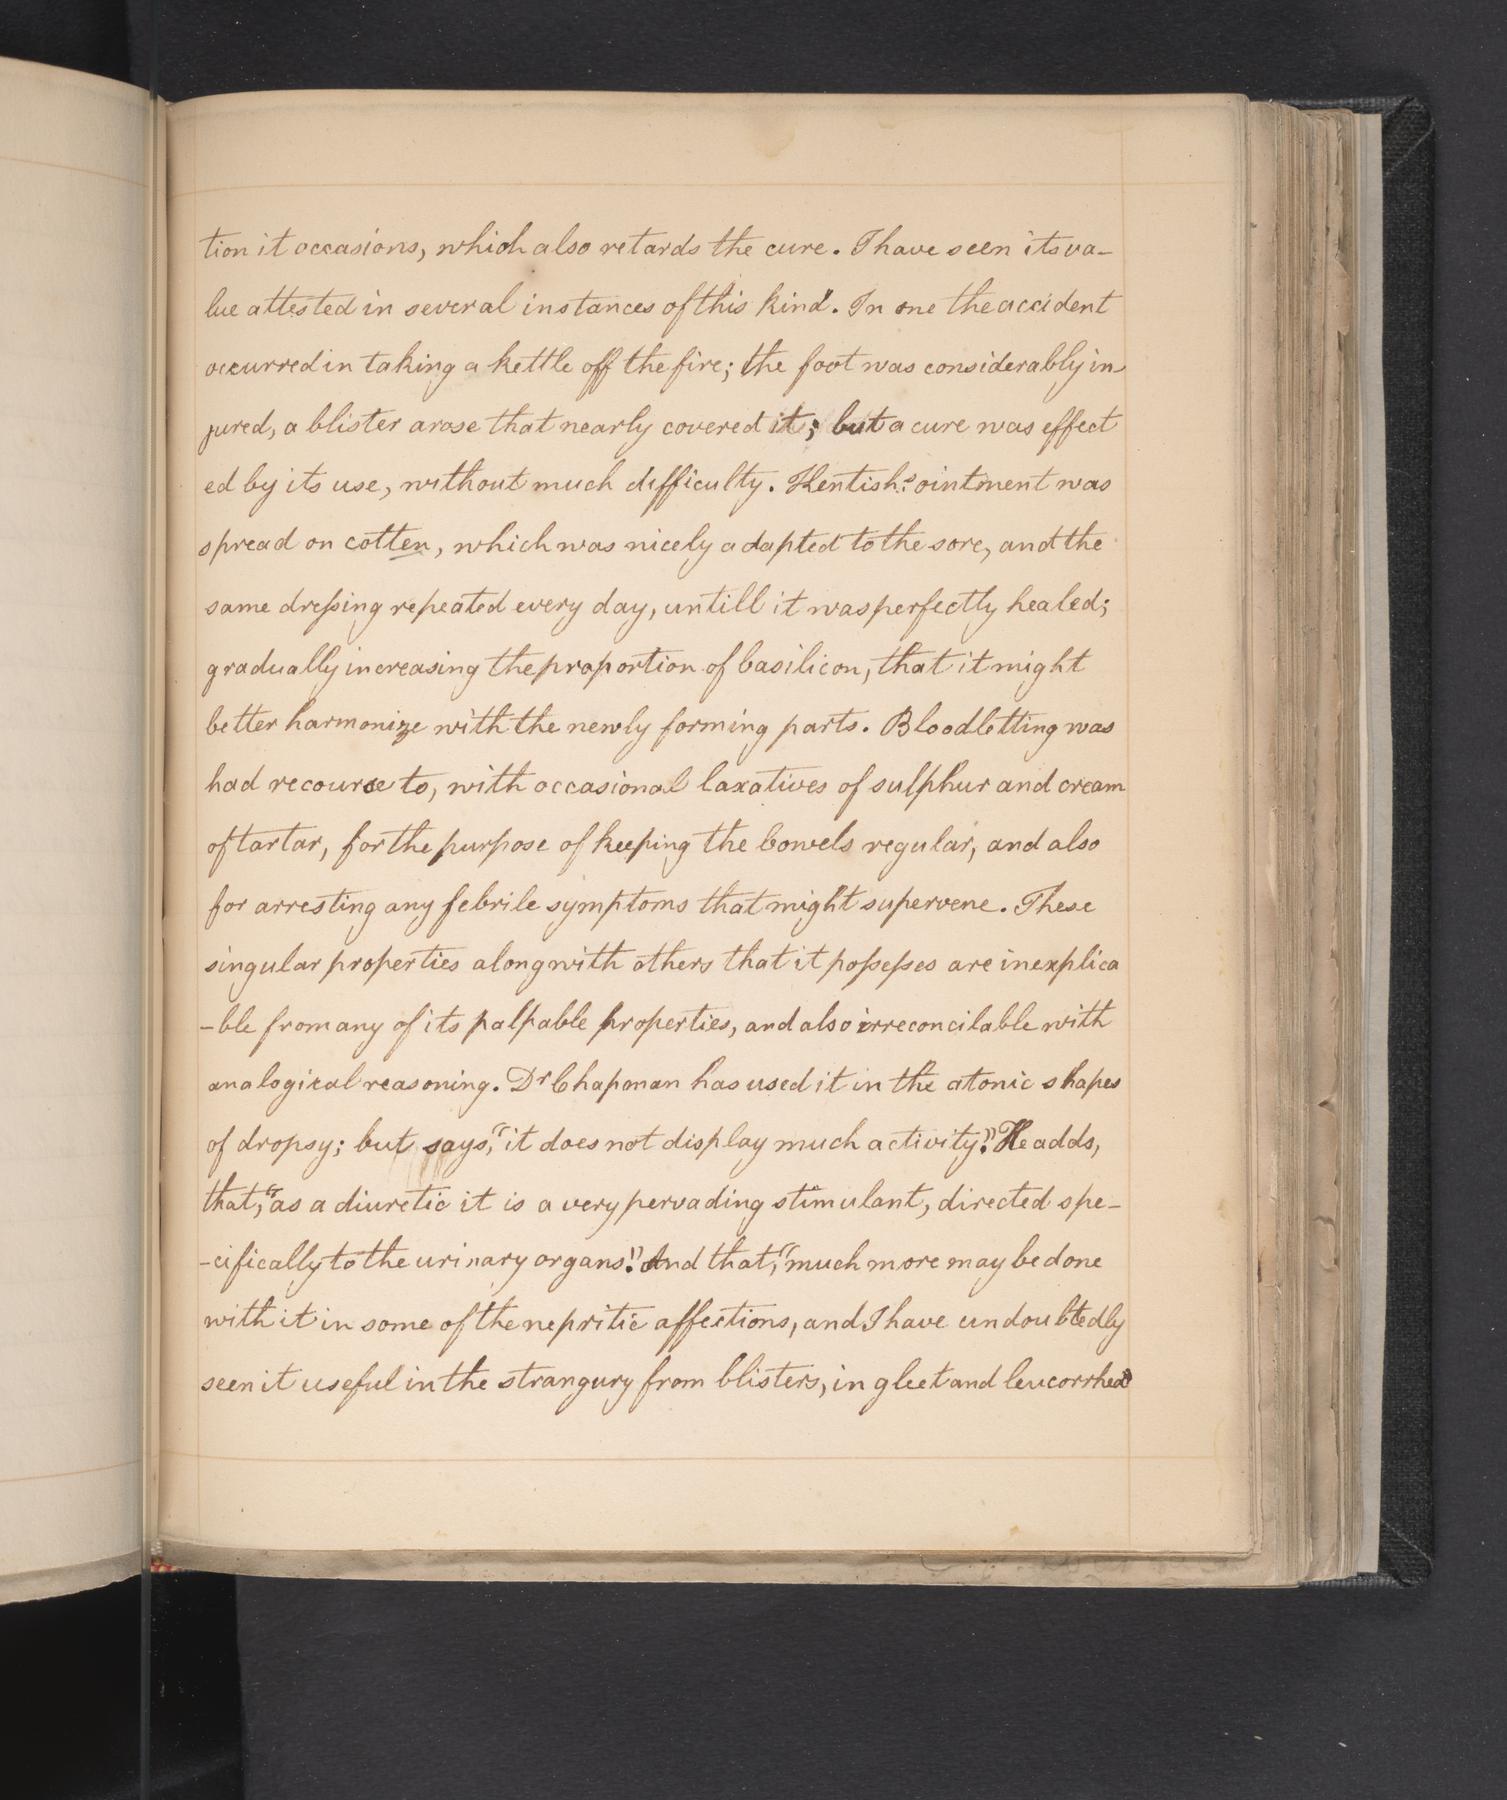 tion it occasions, which also retards the cure. I have seen its va-
lue attested in several instances of this kind. In one the accident
occurred in taking a kettle off the fire; the foot was considerably in
jured, a blister arose that nearly covered it; but a cure was effect
ed by its use, without much difficulty. Kentish's ointment was
spread on cotten, which was nicely adapted to the sore, and the
same dreſsing repeated every day, untill it was perfectly healed;
gradually increasing the proportion of basilicon, that it might
better harmonize with the newly forming parts. Bloodletting was
had recourse to, with occasional laxatives of sulphur and cream
of tartar, for the purpose of keeping the bowels regular, and also
for arresting any febrile symptoms that might supervene. These
singular properties along with others that it poſseſses are inexplica
-ble from any of its palpable properties, and also irreconcilable with
analogical reasoning. Dr Chapman has used it in the atonic shapes
of dropsy; but says, "it does not display much activity." He adds,
that, "as a diuretic it is a very pervading stimulant, directed spe-
-cifically to the urinary organs." And that, "much more may be done
with it in some of the nepritic affections, and I have undoubtedly
seen it useful in the strangury from blisters, in gleet and leucorrhea"